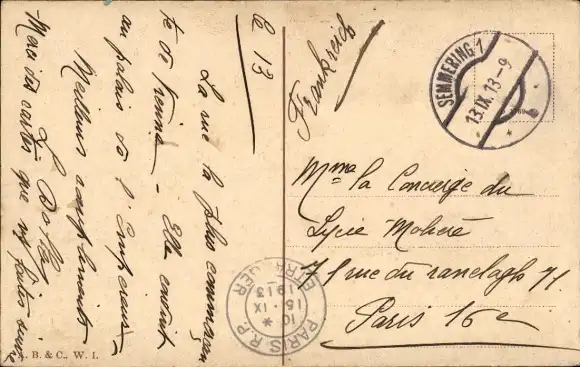 le 13
La rue la plus commerçan
te de Vienne - Elle conduit
au palais de l'Empereur
Meilleurs compliments
Merci des cartes que
Frankreich
SEMMERING 1
13.IX.13-9
Mme la Concierge du
Lycée Molière
71 rue du ranelagh 71
Paris 16e
PARIS R.P.
ETRANGER
10 *
15 · IX
1913
B. & C., W. I.